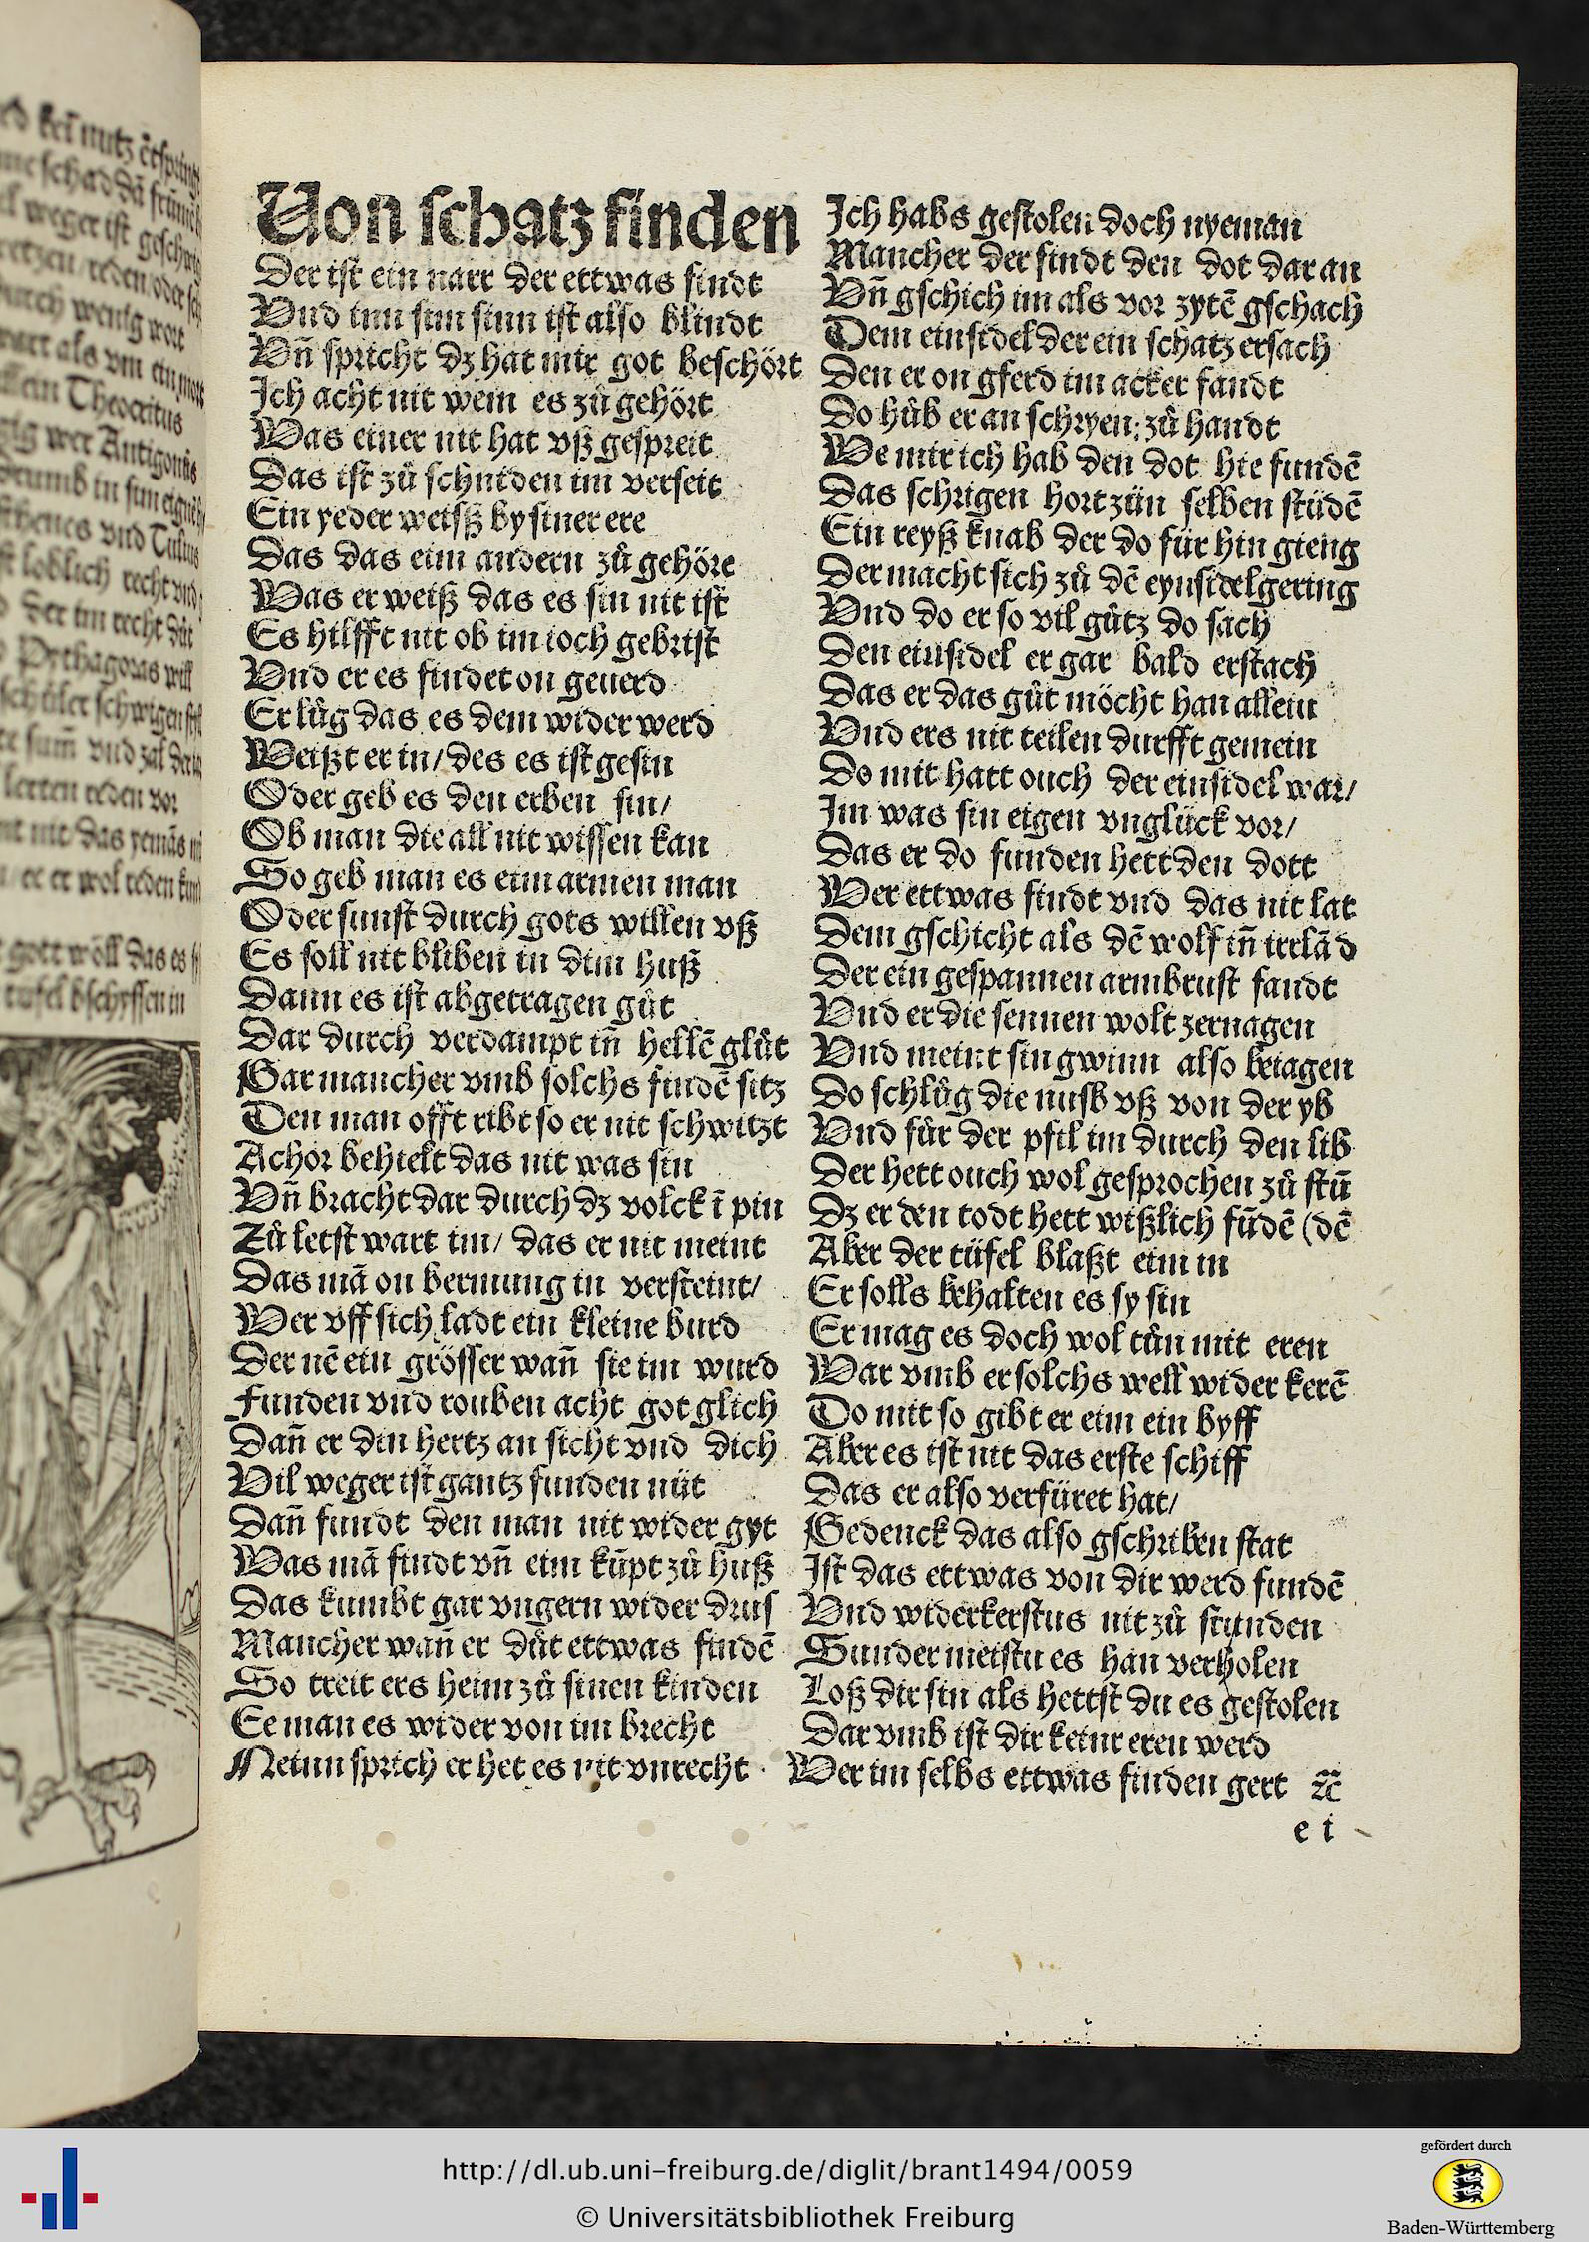 Von schatz finden
Der ist ein narr der ettwas findt
Vnd inn sim sinn ist also blindt
Vn̄ spricht dz hat mir got beschört
Ich acht nit wem es zů gehört
Was einer nit hat vß gespreit
Das ist zů schniden im verseit
Ein yeder weisß by siner ere
Das das eim andern zů gehöre
Was er weiß das es sin nit ist
Es hilfft nit ob im ioch gebrist
Vnd er es findet on geuerd
Er lůg das es dem wider werd
Weißt er in/ des es ist gesin
Oder geb es den erben sin/
Ob man die all nit wissen kan
So geb man es eim armen man
Oder sunst durch gots willen vß
Es soll nit bliben in dim huß
Dann es ist abgetragen gůt
Dar durch verdampt in̄ hellē glůt
Gar mancher vmb solchs findē sitz
Den man offt ribt so er nit schwitzt
Achor behielt das nit was sin
Vn̄ bracht dar durch dz volck ī pin
Zů letst wart im/ das er nit meint
Das mā on bermung in versteint/
Wer vff sich ladt ein kleine burd
Der nē ein grösser wan̄ sie im wurd
Funden vnd rouben acht got glich
Dan̄ er din hertz an sicht vnd dich
Vil weger ist gantz funden nüt
Dan̄ fundt den man nit wider gyt
Was mā findt vn̄ eim kūpt zů huß
Das kumbt gar vngern wider drus
Mancher wan̄ er důt ettwas findē
So treit ers heim zů sinen kinden
Ee man es wider von im brecht
Neinn sprich er het es nit vnrecht
Ich habs gestolen doch nyeman
Mancher der findt den dot dar an
Vn̄ gschich im als vor zytē gschach
Dem einsidel der ein schatz ersach
Den er on gferd im acker fandt
Do hůb er an schryen: zů handt
We mir ich hab den dot hie fundē
Das schrigen hort zün selben stüdē
Ein reyß knab der do für hin gieng
Der macht sich zů dē eynsidel gering
Vnd do er so vil gůtz do sach
Den einsidel er gar bald erstach
Das er das gůt möcht han allein
Vnd ers nit teilen durfft gemein
Do mit hatt ouch der einsidel war/
Im was sin eigen vnglück vor/
Das er do funden hett den dott
Wer ettwas findt vnd das nit lat
Dem gschicht als dē wolf in̄ irrlād
Der ein gespannen armbrust fandt
Vnd er die sennen wolt zernagen
Vnd meint sin gwinn also beiagen
Do schlůg die nusb vß von der yb
Vnd für der pfil im durch den lib
Der hett ouch wol gesprochen zů stū
Dz er den todt hett wißlich fūdē (dē
Aber der tüfel blaßt eim in
Er solls behalten es sy sin
Er mag es doch wol tůn mit eren
War vmb er solchs well wider kerē
Do mit so gibt er eim ein byff
Aber es ist nit das erste schiff
Das er also verfüret hat/
Gedenck das also gschriben stat
Ist das ettwas von dir werd fundē
Vnd widerkerstus nit zů stunden
Sunder meistu es han verholen
Loß dir sin als hettst du es gestolen
Dar vmb ist dir keinr eren werd
Wer im selbs ettwas finden gert ⁊c̄
e i
http://dl.ub.uni-freiburg.de/diglit/brant1494/0059
© Universitätsbibliothek Freiburg
gefördert durch
Baden-Württemberg